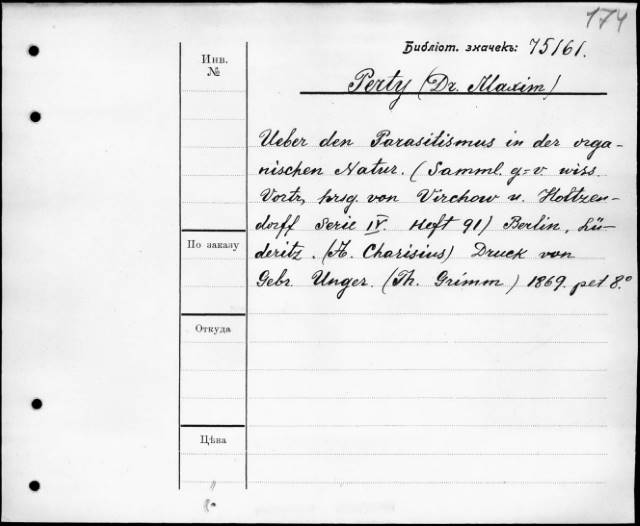 174
Библіот. значекъ: 75161.
Инв.
№
Perty (Dr. Maxim)
Ueber den Parasitismus in der orga-
nischen Natur. (Samml. g=v. wiss.
Vortr, hrsg. von Virchow u. Holtzen-
dorff Serie IV. Heft 91) Berlin, Lü-
По заказу
deritz. (A. Charisius) Druck von
Gebr. Unger. (Th. Grimm) 1869. pet 8.º
Откуда
Цѣна